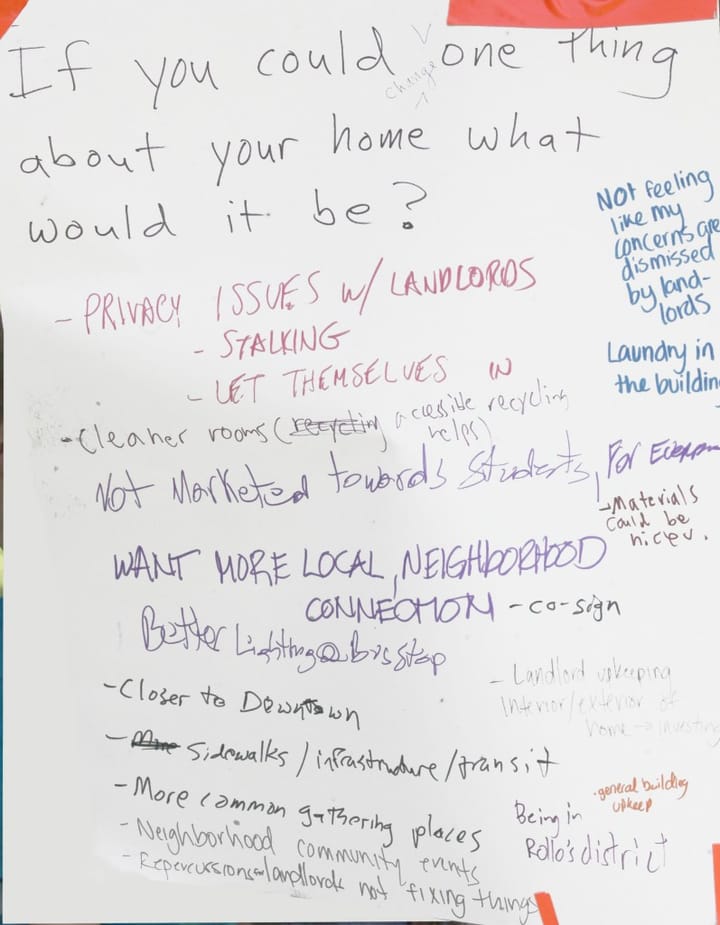 If you could change one thing
about your home what
would it be?
NOT feeling
like my
concerns are
dismissed
by land-
lords
- PRIVACY ISSUES W/ LANDLORDS
- STALKING
- LET THEMSELVES IN
Laundry in
the building
- Cleaner rooms (recycling accessible recycling
helps)
Not Marketed towards Students, For
- Materials
could be
nicer.
WANT MORE LOCAL, NEIGHBORHOOD
CONNECTION - co-sign
Better Lighting @ bus stop
- Landlord upkeeping
Interior/exterior of
home → investing
- Closer to Downtown
- Sidewalks / infrastructure / transit
- general building
upkeep
- More common gathering places
Being in
Rollo's district
- Neighborhood community events
- Repercussions landlords not fixing things